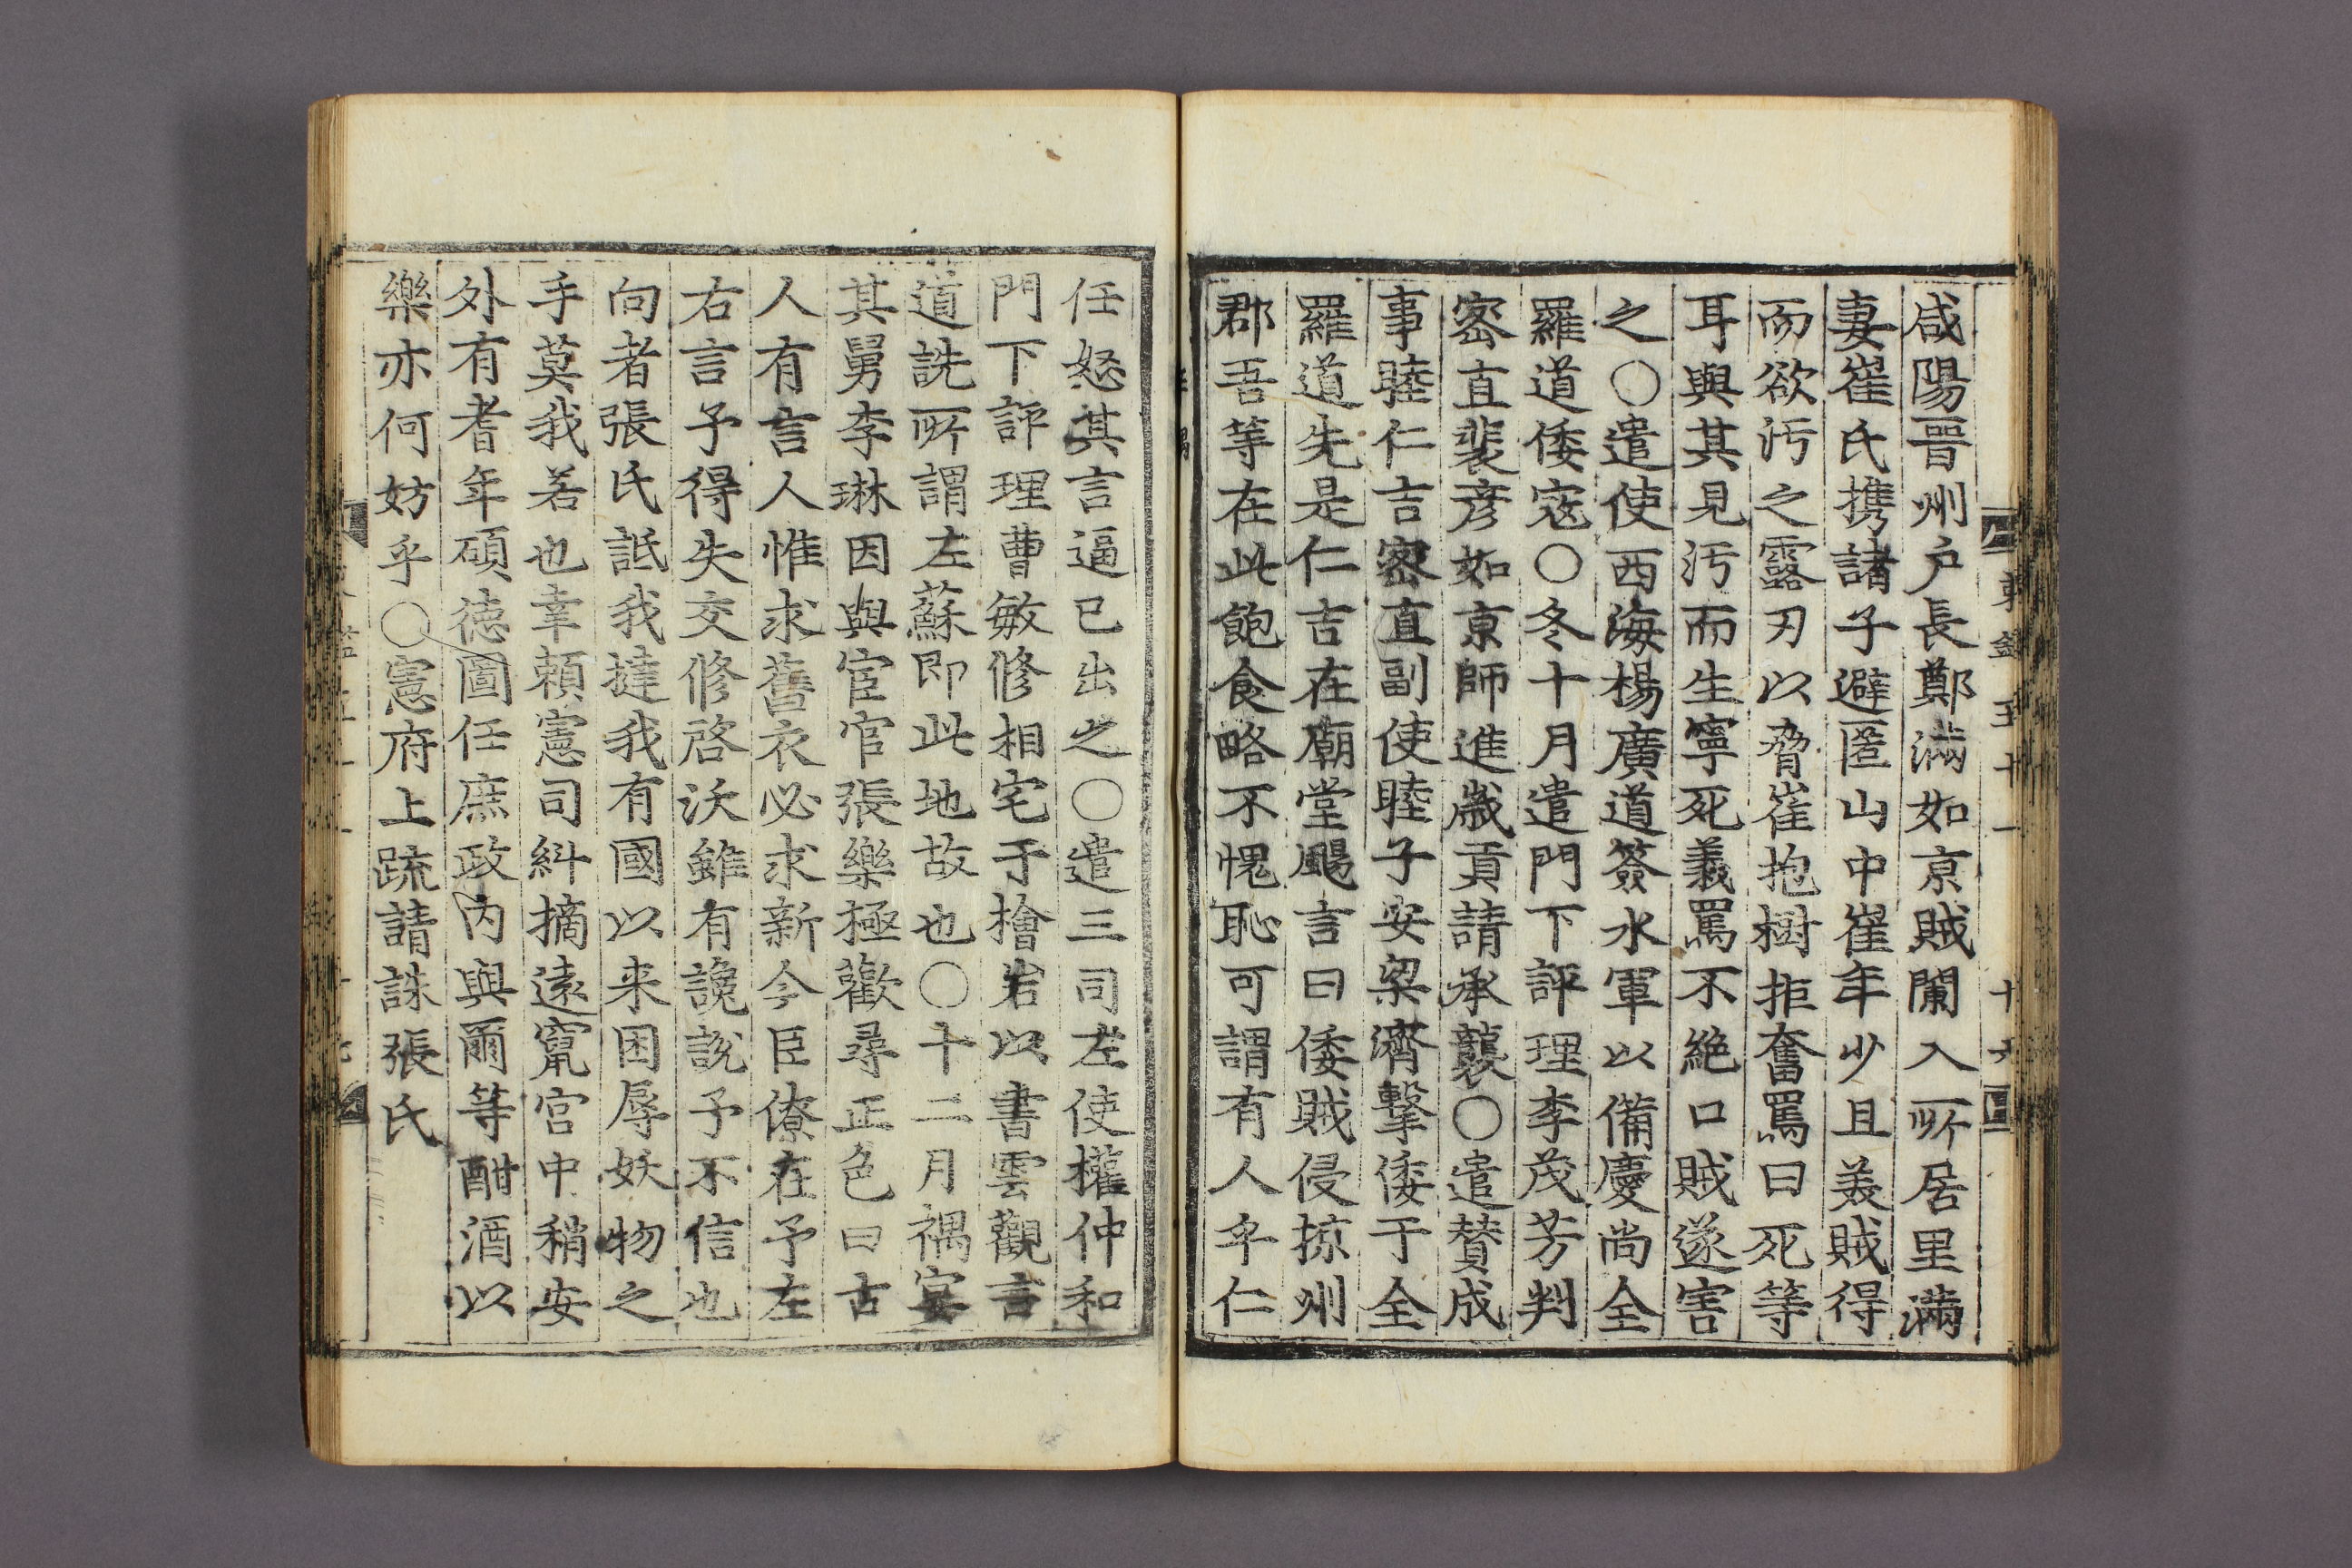 咸陽晉州户長鄭滿如京賊闌入所居里滿
妻崔氏携諸子避匿山中崔年少且美賊得
而欲汚之露刃以脅崔抱樹拒奮罵曰死等
耳與其見汚而生寧死義罵不絶口賊遂害
之○遣使西海楊廣道簽水軍以備慶尚全
羅道倭寇○冬十月遣門下評理李茂芳判
密直裴彦如京師進歳貢請承襲○遣賛成
事睦仁吉密直副使睦子安梁濟擊倭于全
羅道先是仁吉在廟堂颺言曰倭賊侵掠州
郡吾等在此飽食略不愧恥可謂有人乎仁
任怒其言逼已出之○遣三司左使權仲和
門下評理曹敏修相宅于檜岩以書雲觀言
道詵所謂左蘇即此地故也○十二月禑宴
其舅李琳因與宦官張樂極歡尋正色曰古
人有言人惟求舊衣必求新今臣僚在予左
右言予得失交修啓沃雖有讒說予不信也
向者張氏詆我撻我有國以来困辱妖物之
手莫我若也幸頼憲司糾摘遠竄宮中稍安
外有耆年碩徳圖任庶政内與爾等酣酒以
樂亦何妨乎○憲府上疏請誅張氏